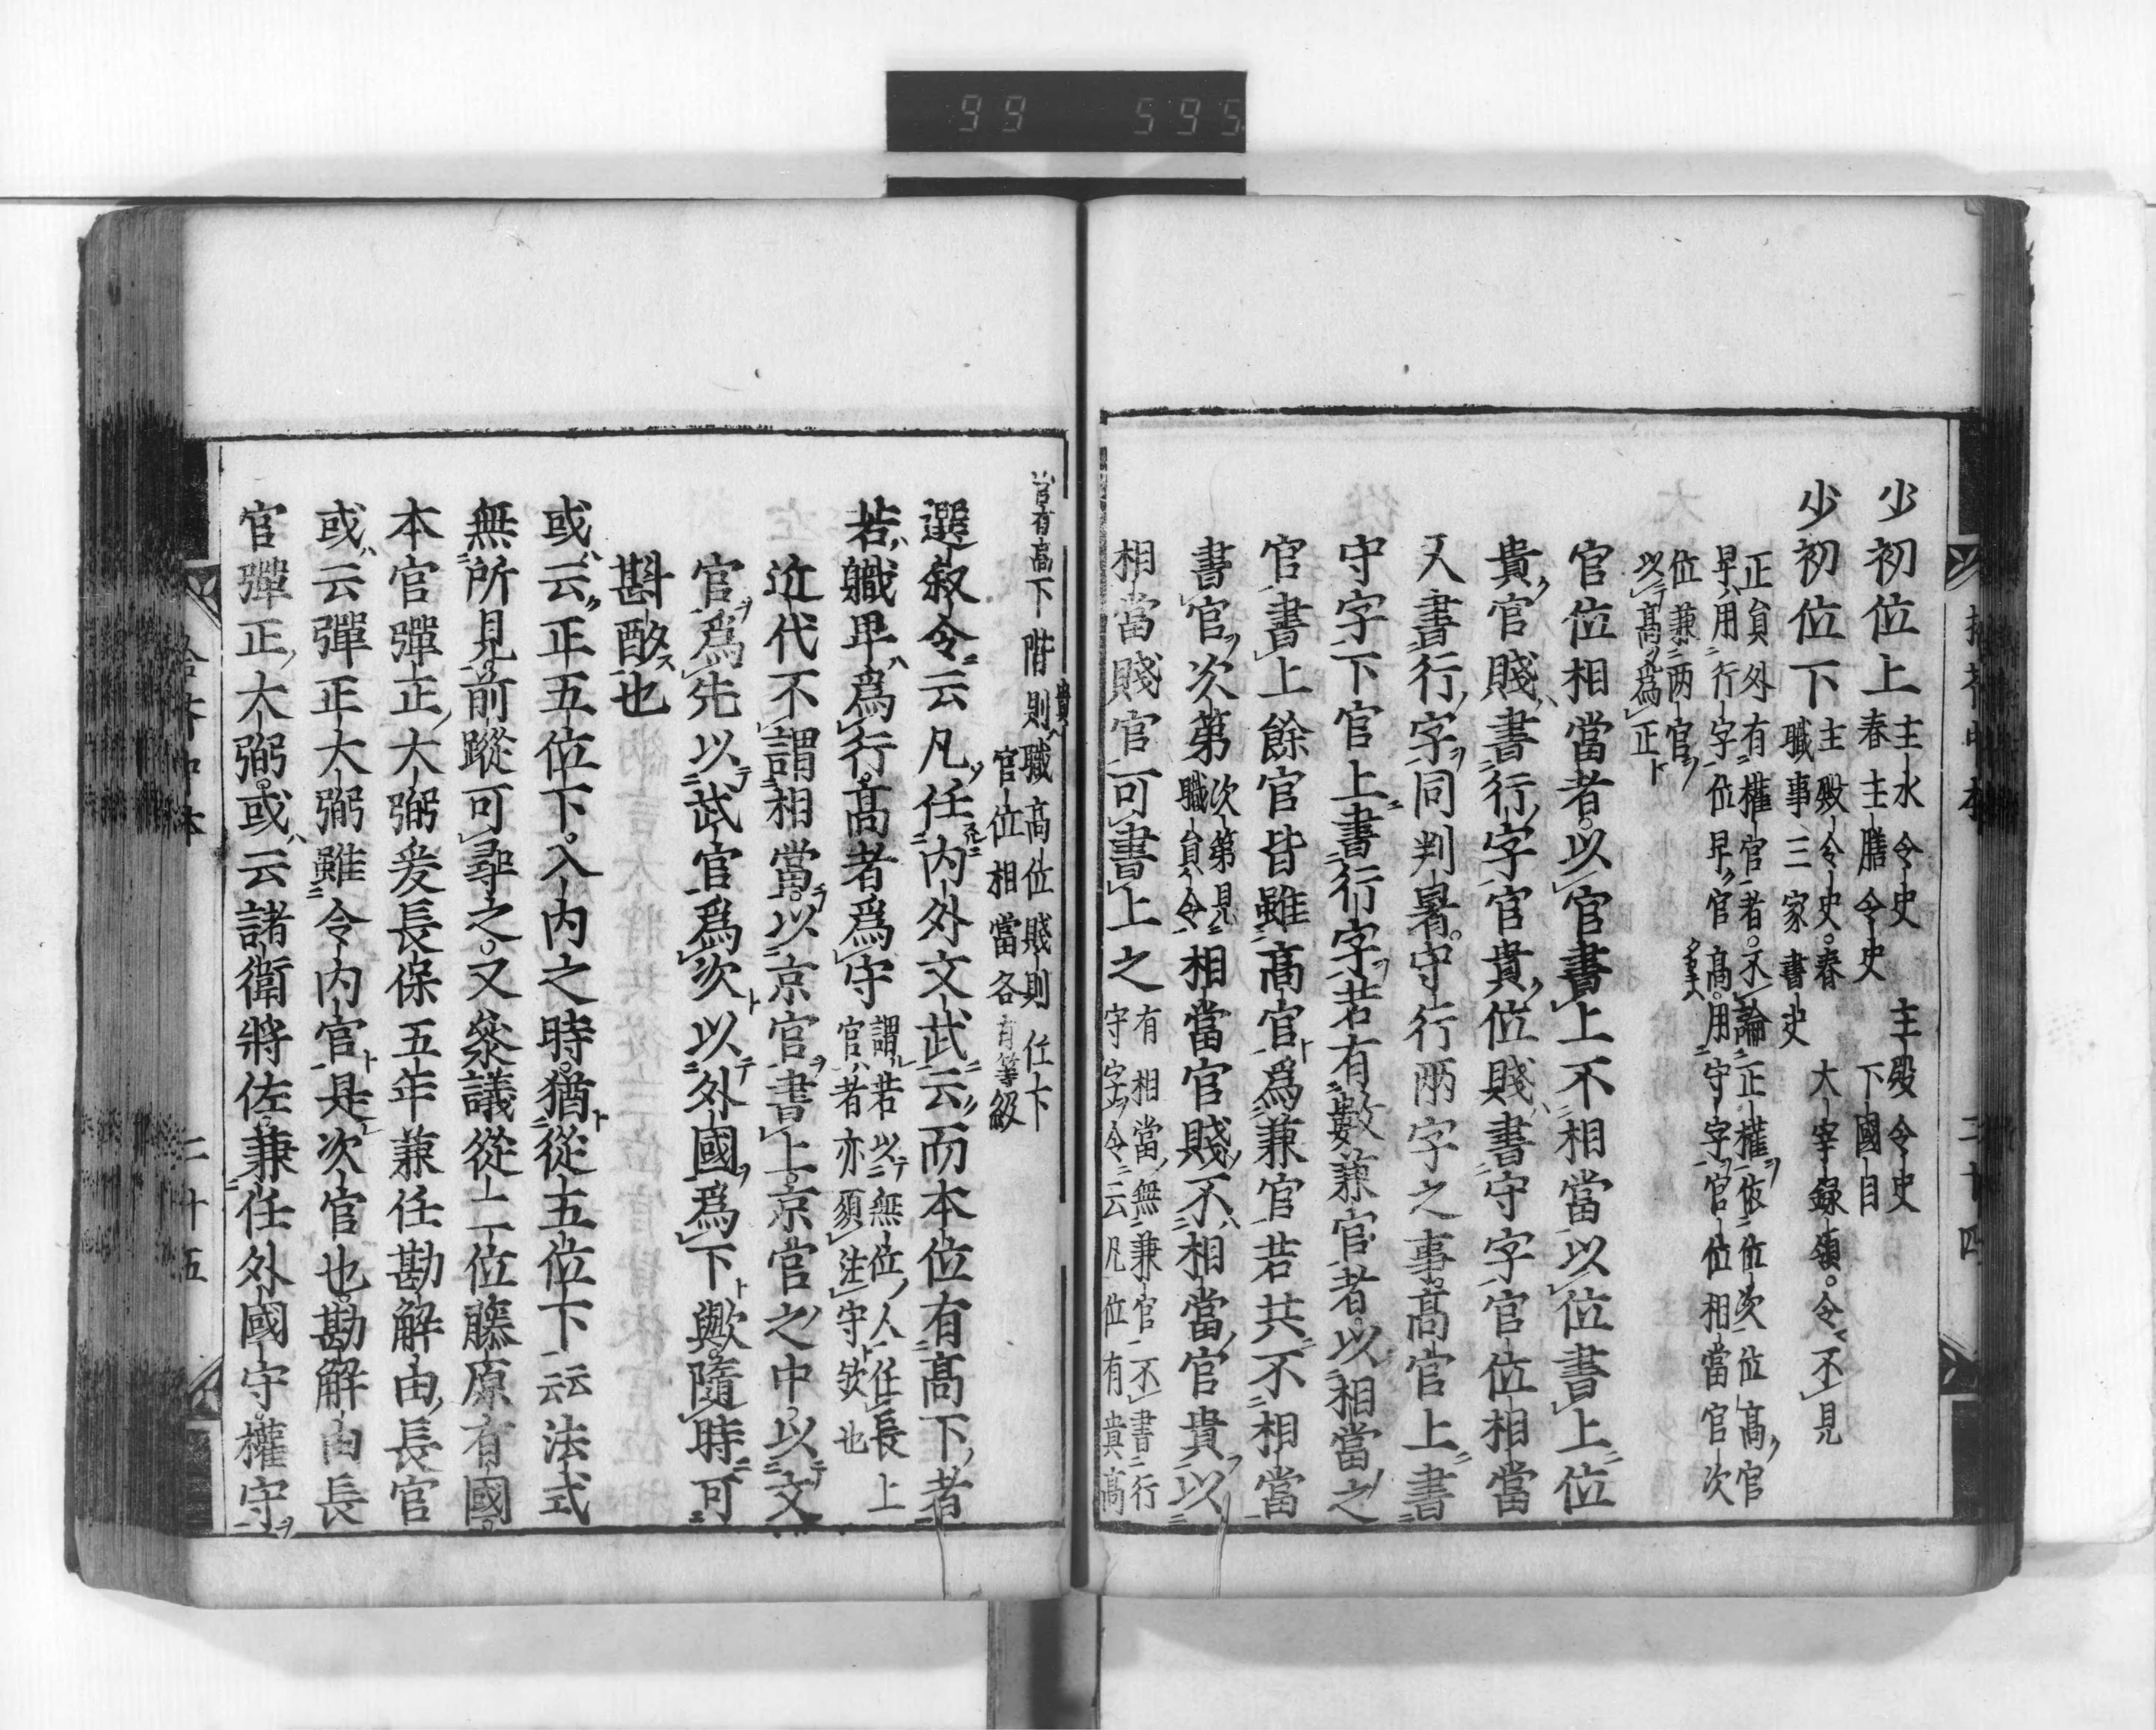 99 595
少初位上 主水令史 主殿令史
春主膳令史 下國目
少初位下 主殿令史。春 大宰録領。令不見
職事三家書史
正員外有權官者。不論正權依位次位高官
卑用行字位卑官高。用守字官位相當官次
位兼兩官
以高爲正
官位相當者。以官書上不相當以位書上位
貴官賤書行字官貴位賤書守字官位相當
人書行字同判署。守行兩字之事。高官上書
守字下官上書行字若有數兼官者。以相當之
官書上餘官皆雖高官爲兼官若共不相當
書官次第 次第見
職員令 相當官賤不相當官貴以
相當賤官可書上之 有相當無兼官不書行
守字令云凡位有貴高
官有高下階則職高位賤則任下
官位相當各有等級
選叙令云凡任内外文武云而本位有高下者
若職卑爲行。高者爲守 謂若以無位人任長上
官者亦須注守欤也
近代不謂相當。以京官書上。京官之中。以文
官爲先以武官爲次以外國爲下歟。隨時可
斟酌也
或云正五位下。入内之時。猶從五位下云云法式
無所見前蹤可尋之。又叅議從上一位藤原有國。
本官彈正大弼爰長保五年兼任勘解由長官
或云彈正大弼雖令内官是次官也。勘解由長
官彈正大弼。或云諸衛將佐兼任外國守。權守
二十四
二十五